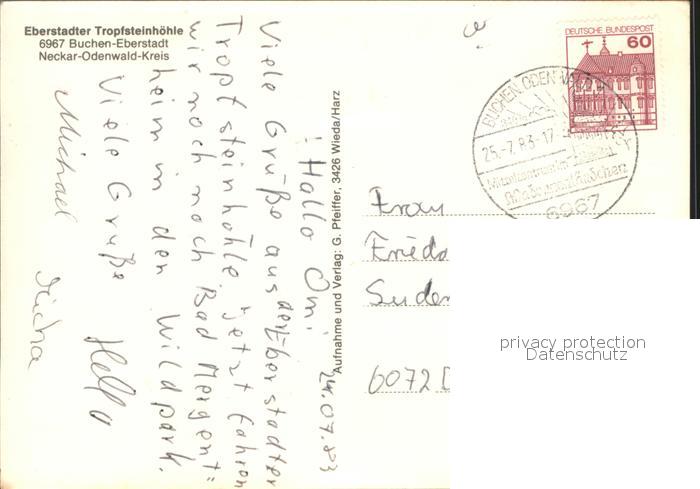 Eberstadter Tropfsteinhöhle
6967 Buchen-Eberstadt
Neckar-Odenwald-Kreis
24.07.83
Hallo Omi!
Viele Grüße aus der Eberstadter
Tropfsteinhöhle. Jetzt fahren
wir noch nach Bad Mergent=
heim in den Wildpark.
Viele Grüße
Michael
Aufnahme und Verlag: G. Pfeiffer, 3426 Wieda/Harz
DEUTSCHE BUNDESPOST
60
BUCHEN, ODENWALD
25.-7.83-17
6967
Frau
Frieda
6072 D
privacy protection
Datenschutz